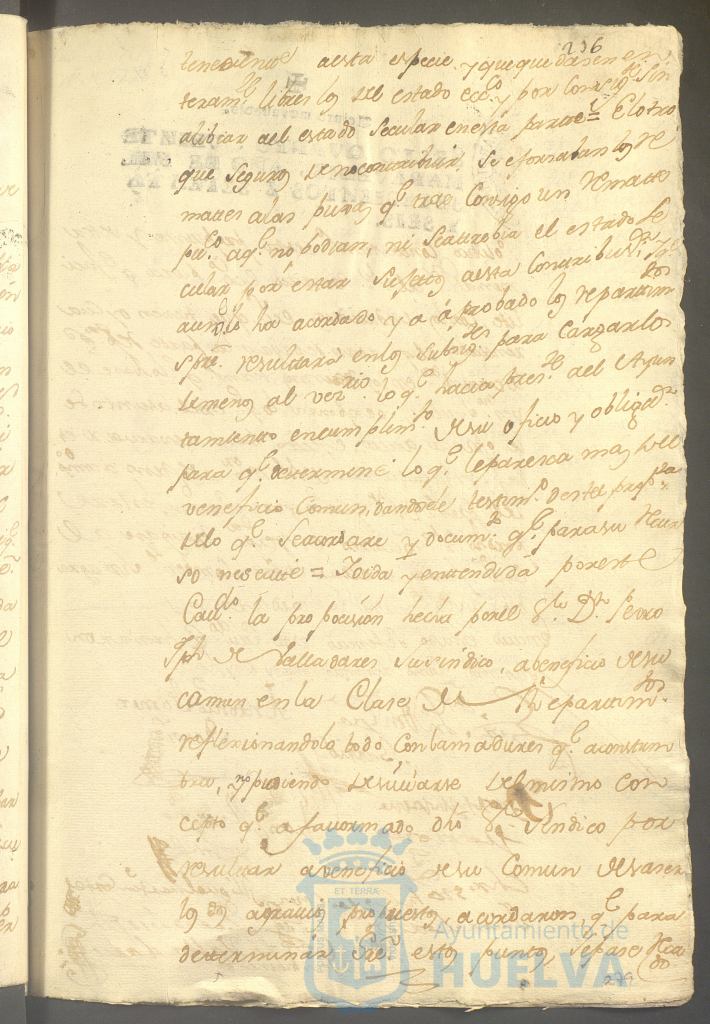 236
aesta especie y que quedasen en
teram.te libres los del estado ecc.co y por
alibiar al estado Secular en esta parte = El otro
que seguros de no contribuir, se esforsaban los
mates a las puras q.e trae Consigo un Remate
pu.co a q.e no podian, ni Se atrobia el estado Se
cular por estar sugetos a esta Contribu.on
aun lo ha acordado y a aprobado los repartim.tos
para Cargarlos
de menos al vez.rio lo q.e hacia pres.te al Ayun
tamiento en cumplim.to de su oficio y obligaz.n
para q.e determine lo q.e le paresca mas
veneficio Comun, dandole testim.o de esta prop.ta
de lo q.e Se acordare y docum.to q.e para su Recur
so nesecite = I oida y entendida por este
Cav.do la proposision hecha por el S.r D.n Pedro
Jph de Valladares Su sindico, a beneficio de su
comun en la Clase de Repartim.tos
reflexionandolo todo con la madures q.e acostum
bra, no pudiendo desviarse del mismo con
cepto q.e a formado dho S.r Sindico por
resultar a beneficio de su Comun
los agravios propuestos, acordaron q.e para
determinar Sre. este punto, se pase
ET TERRÆ
Ayuntamiento de
HUELVA
279